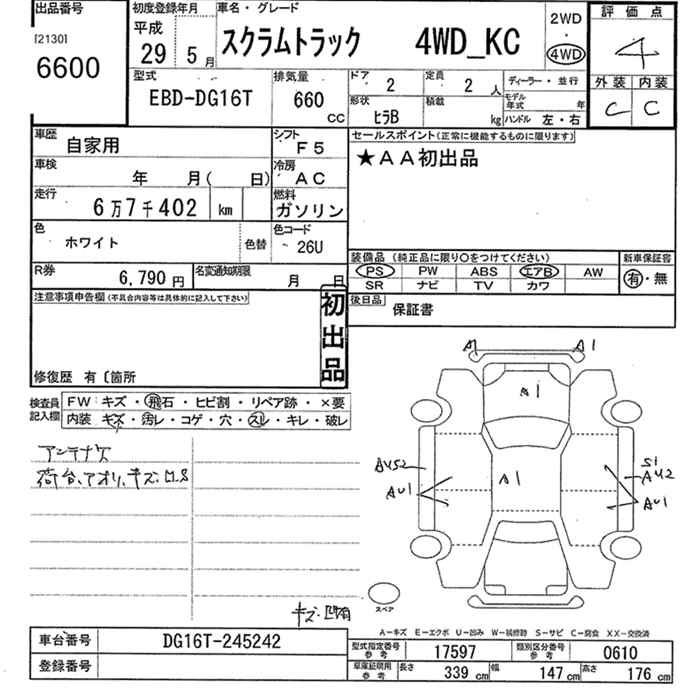 出品番号 初度登録年月 車名・グレード 評価点
[2130] 平成 2WD
6600 29年 5月 スクラムトラック 4WD_KC ・ 4WD 4
型式 排気量 ドア 定員 ディーラー・並行 外装 内装
EBD-DG16T 660 CC 2 2人 モデル年式 年 C C
形状 積載
ﾋﾗB kg ハンドル 左・右
車歴 自家用 シフト F5 セールスポイント(正常に機能するものに限ります)
車検 年 月( 日) 冷房 AC ★AA初出品
走行 6万7千402 km 燃料 ガソリン
色 ホワイト 色替 色コード 26U 装備品(純正品に限り○をつけてください) 新車保証書
PS PW ABS エアB AW 有・無
R券 6,790円 名変通知期限 月 日 SR ナビ TV カワ
注意事項申告欄(不具合内容等は具体的に記入して下さい) 初出品 後日品 保証書
修復歴 有〔箇所
検査員記入欄 FW: キズ・飛石・ヒビ割・リペア跡・×要
内装 キズ・汚レ・コゲ・穴・スレ・キレ・破レ
A1 A1
A1
アンテナ
荷台、アオリ、キズ
AU52 A1 S1
AU2
AU1 AU1
スペア
キズ・凹有
A-キズ E-エクボ U-凹み W-補修跡 S-サビ C-腐食 XX-交換済
車台番号 DG16T-245242 型式指定番号 参考 17597 類別区分番号 参考 0610
登録番号 車庫証明用 参考 長さ 339cm 幅 147cm 高さ 176cm